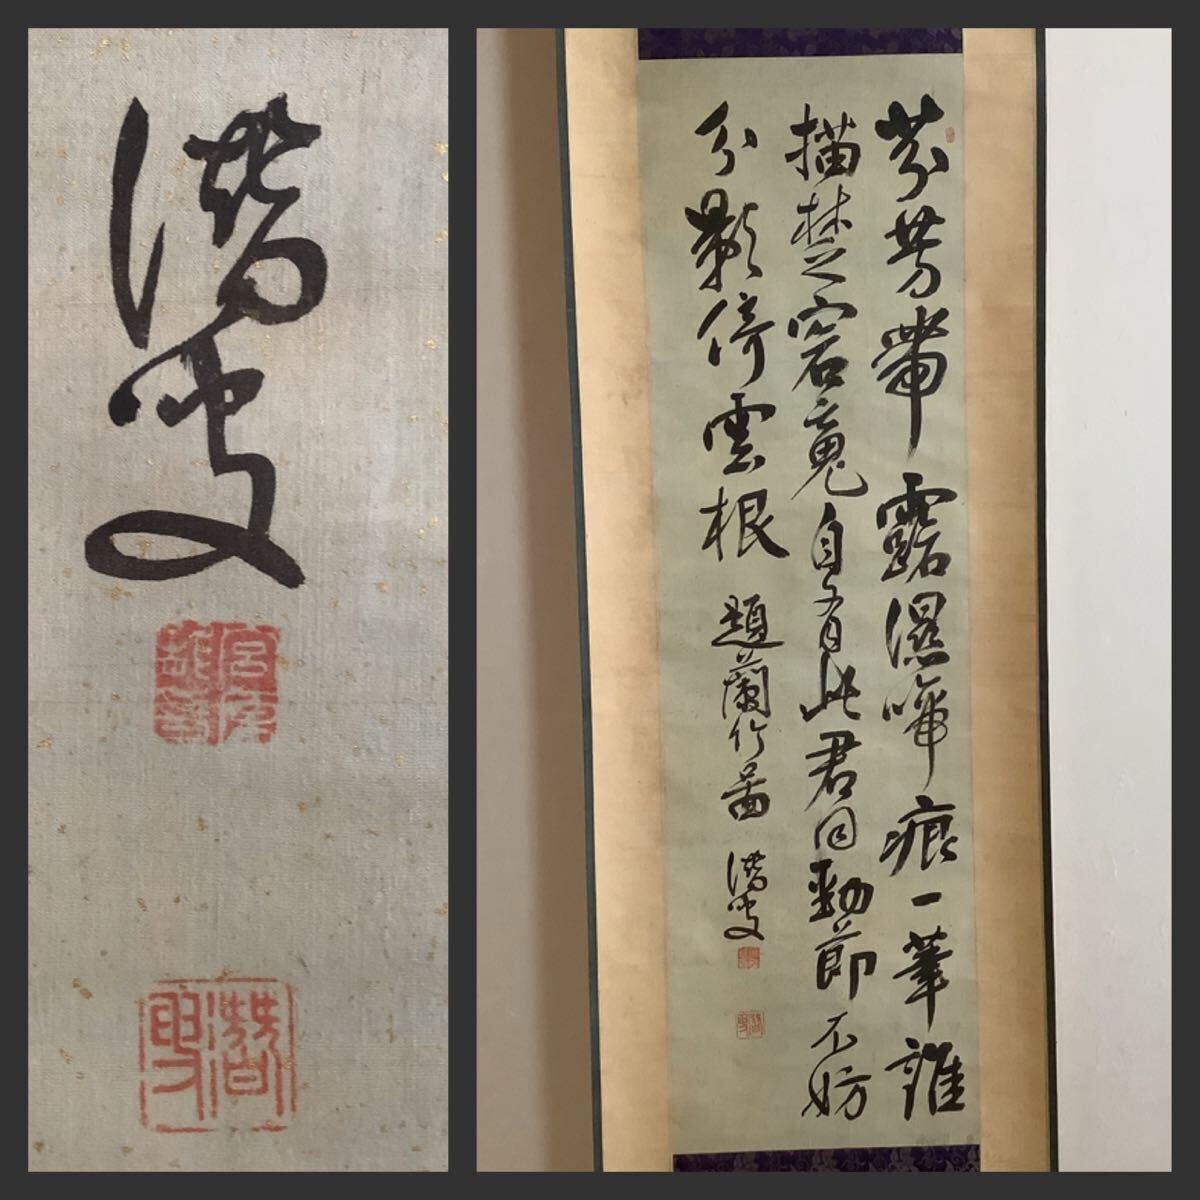 潛叟
潛叟
芬芳帶露濕啼痕一筆誰
描楚客魂自有此君同勁節不妨
分影倚雲根 題蘭竹圖 潛叟